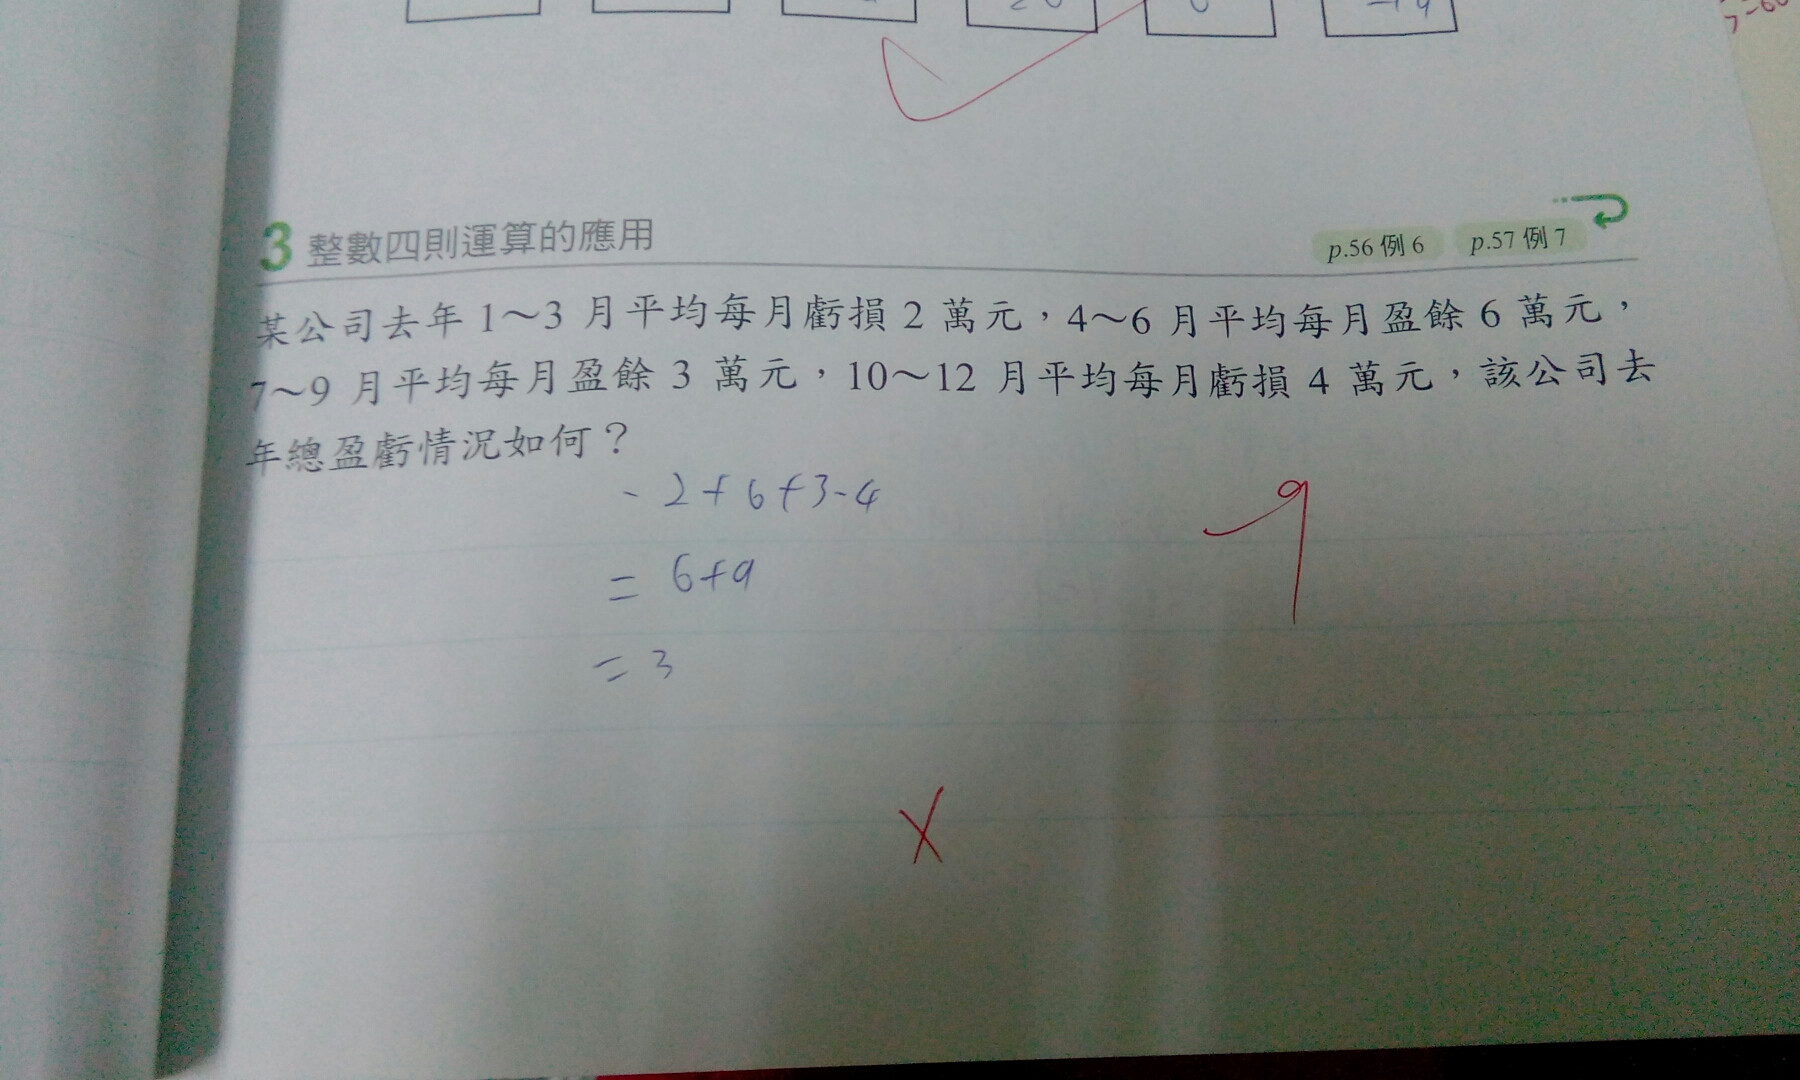 3 整數四則運算的應用
p.56 例 6 p.57 例 7
某公司去年 1～3 月平均每月虧損 2 萬元，4～6 月平均每月盈餘 6 萬元，
7～9 月平均每月盈餘 3 萬元，10～12 月平均每月虧損 4 萬元，該公司去
年總盈虧情況如何？
-2+6+3-4
= 6+9
= 3